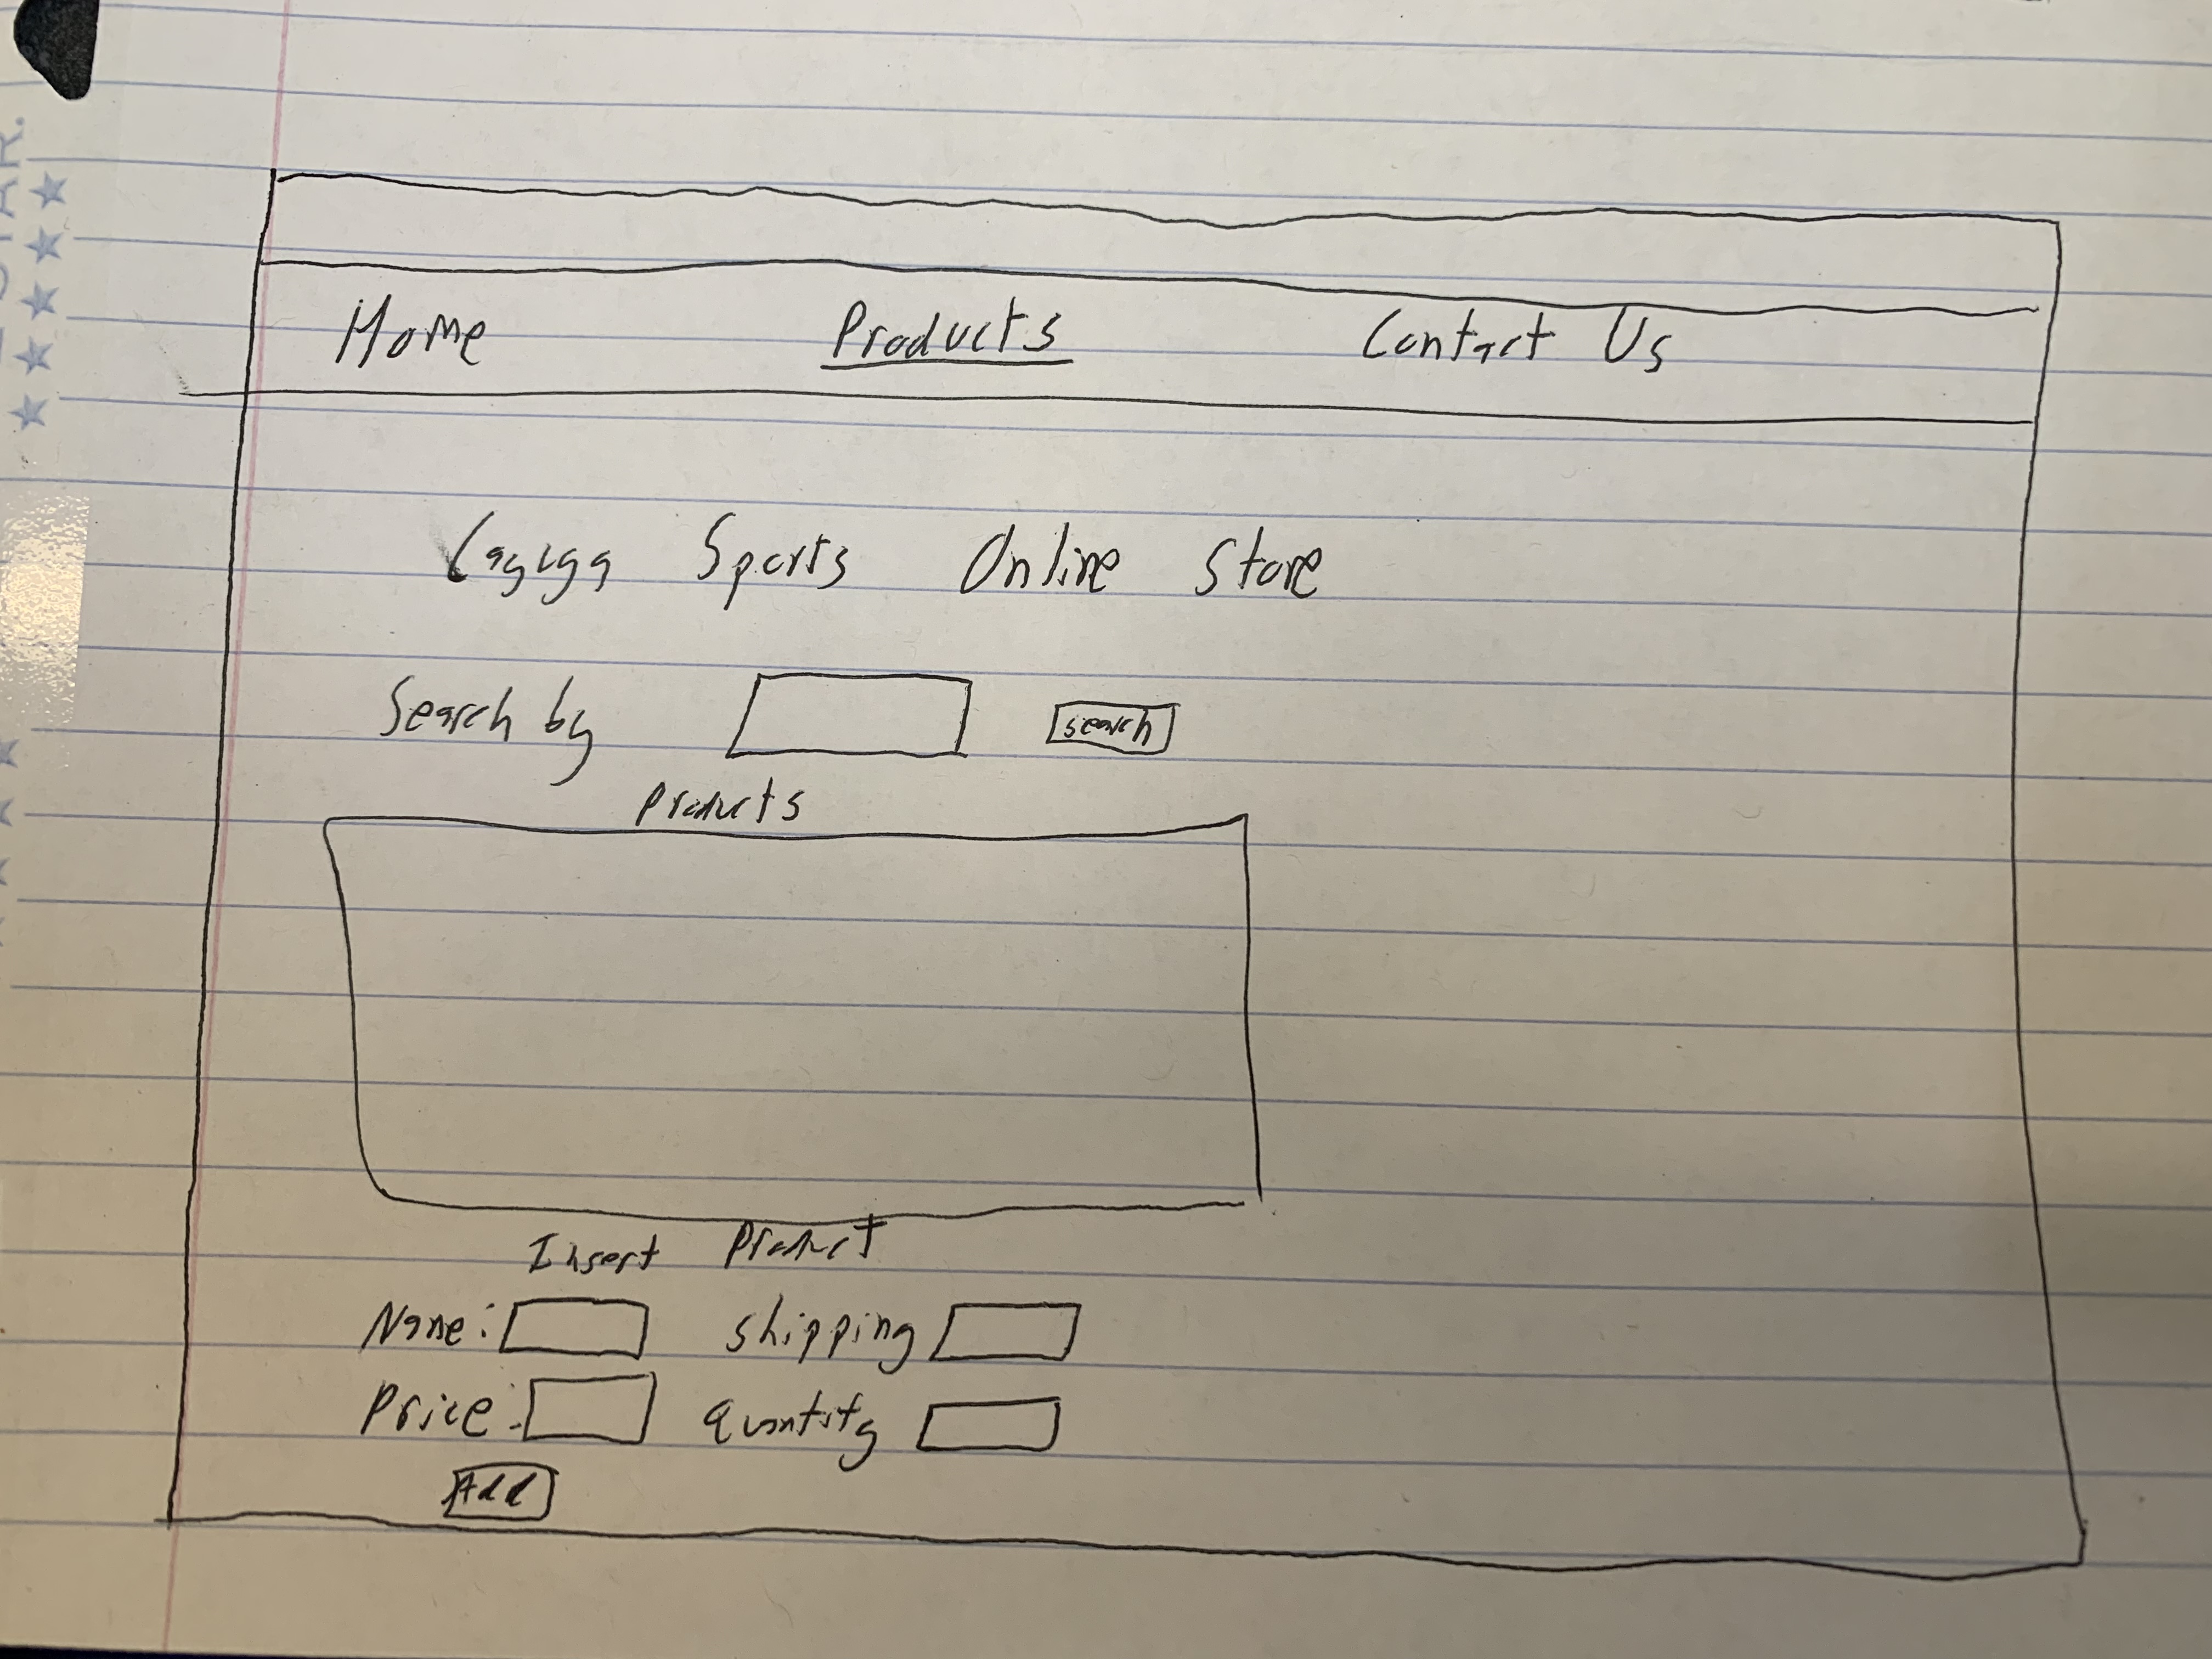 STAR.
Home Products Contact Us
Sports Online Store
Search by search
Products
Insert Product
Name: Shipping
Price: quantity
Add